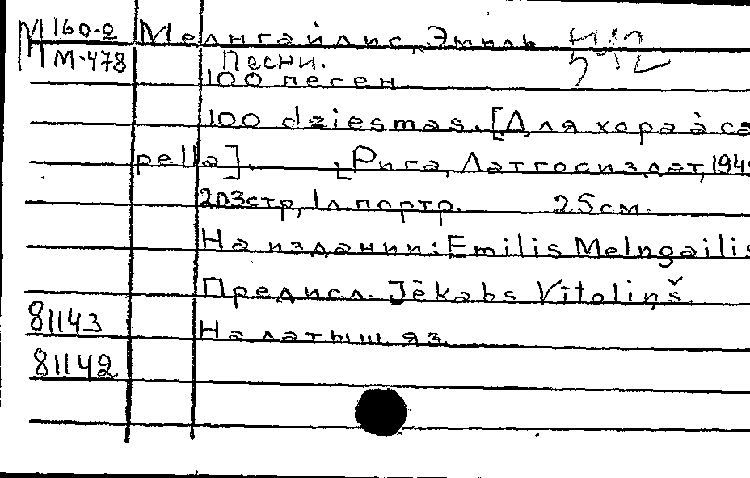 М 160-2 Мелнгайлис, Эмиль
М-478 Песни.
100 песен
100 dziesmas. [Для хора à ca
pella]. [Рига, Латгосиздат, 1949
203стр, 1л портр. 25см.
На издании: Emilis Melngailis
Предисл. Jēkabs Vītoliņš
81143 На латыш. яз.
81142